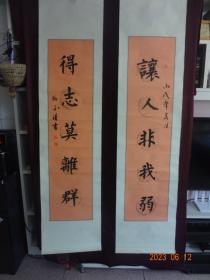 讓人非我弱
得志莫離群
2023 06 12